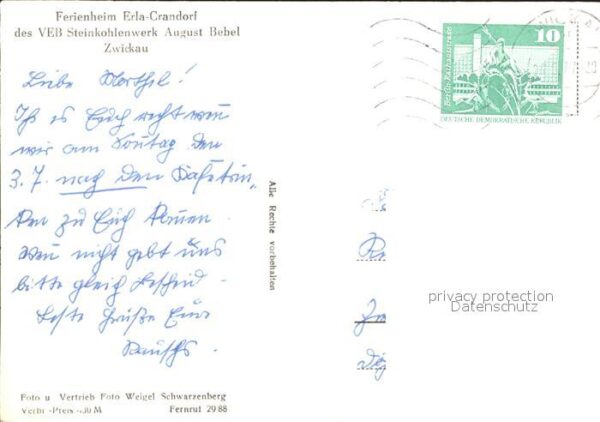 Ferienheim Erla-Crandorf
des VEB Steinkohlenwerk August Bebel
Zwickau
Liebe
Ist es Euch recht wen
wir am Sontag den
3. 7. nach dem Kafetrin-
ken zu Euch kommen.
Wen nicht gebt uns
bitte gleich bescheid.
beste Grüße Eure
Foto u Vertrieb Foto Weigel Schwarzenberg
Verbr -Preis -,30 M Fernruf 29 88
Alle Rechte vorbehalten
10
Berlin, Rathausstraße
DEUTSCHE DEMOKRATISCHE REPUBLIK
privacy protection
Datenschutz